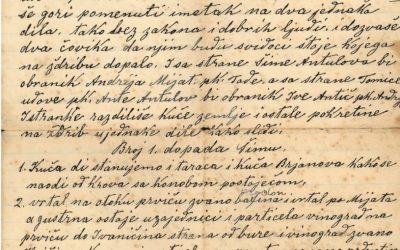 se gori pomenuti imetak na dva jednaka
dila, tako bez zakona i dobrih ljudi, i dozvaše
dva čovika da njim budu svidoci štoje kojega
na ždribu dopalo. I sa strane Šime Antulova bi
obranik Andrija Mijat. pk. Tade, a sa strane Tomice
udove pk. Ante Antulov bi obranik Ive Antić pk. Andr
Istranke razdiliše kuće zemlje i ostale pokretine
na Ždrib ujednake dile kako slidi.
Broj 1. dopada Šimu.
1. Kuća di stanujemo i taraca i kuća Brjanova kako se
naodi od krova sa konobom postojećom,
2. vrtal na otoku prviću zvano bašina i vrtal po Mijata
a gustrna ostaje uzajednici i particela vinograd na
prviću do Ivanićina strana od bure i vinograd zvano